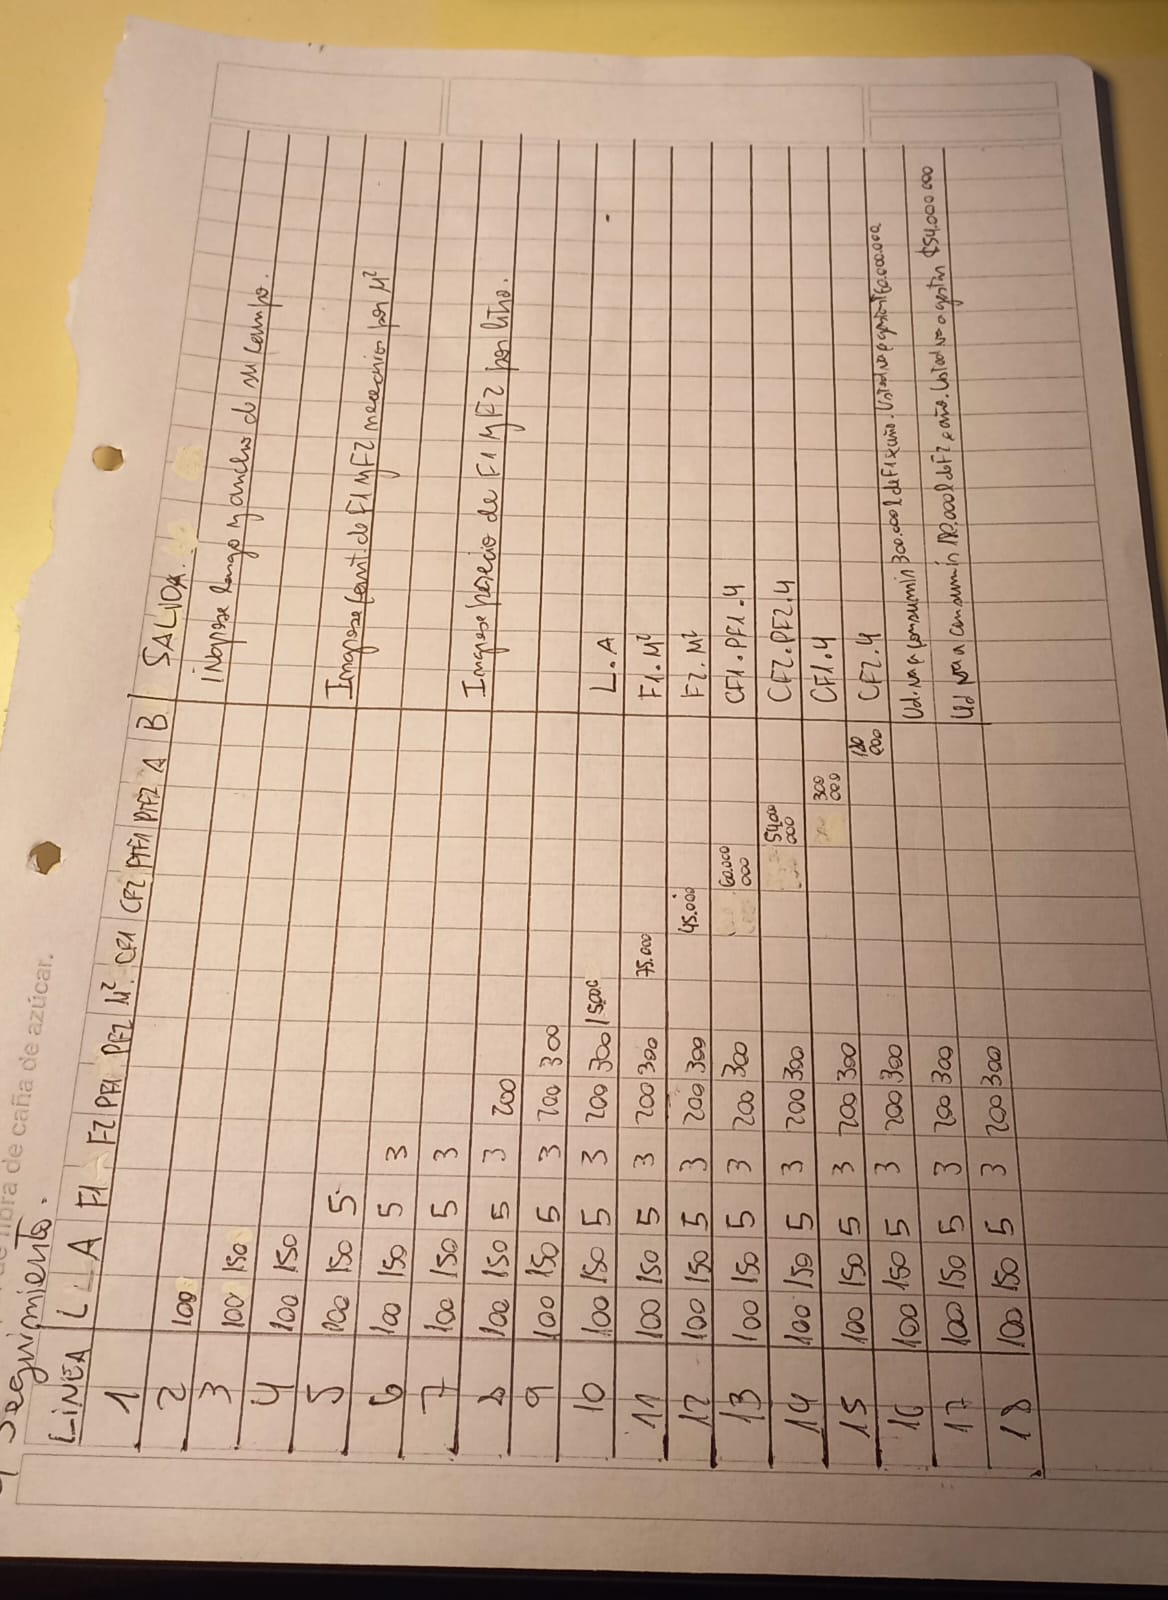 fibra de caña de azúcar.
Seguimiento.
LINEA L A F1 F2 PF1 PF2 M² CF1 CF2 PTF1 PTF2 A B SALIDA.
1 Ingrese largo y ancho de su campo.
2 100
3 100 150
4 100 150 Ingrese cant. de F1 y F2 necesarios por M²
5 100 150 5
6 100 150 5 3
7 100 150 5 3 Ingrese precio de F1 y F2 por litro.
8 100 150 5 3 200
9 100 150 5 3 200 300
10 100 150 5 3 200 300 15000 L.A
11 100 150 5 3 200 300 75.000 F1.M²
12 100 150 5 3 200 300 45.000 F2.M²
13 100 150 5 3 200 300 60.000 000 CF1.PF1.4
14 100 150 5 3 200 300 54.000 000 CF2.PF2.4
15 100 150 5 3 200 300 300 000 CF1.4
16 100 150 5 3 200 300 180 000 CF2.4
17 100 150 5 3 200 300 Ud. va a consumir 300.000 l de F1 x año. Usted va a gastar $60.000.000
18 100 150 5 3 200 300 Ud va a consumir 180.000 l de F2 x año. Usted va a gastar $54.000 000